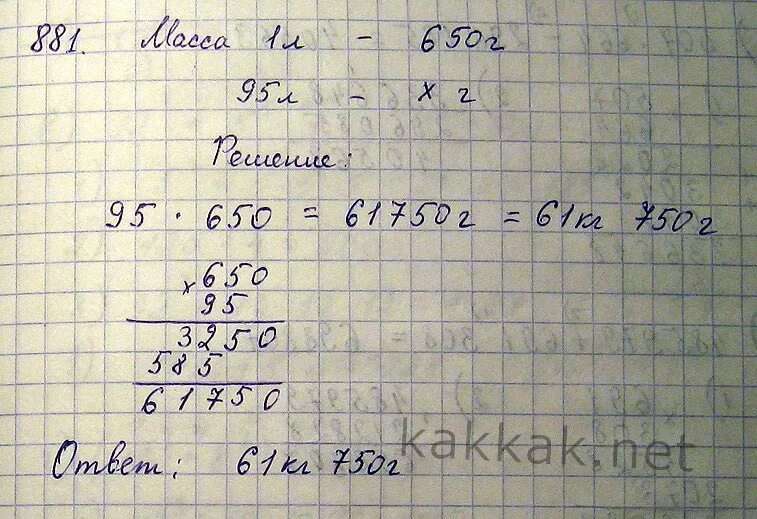 881. Масса 1л - 650г
95л - x г
Решение:
95 · 650 = 61750г = 61кг 750г
x650
95
3250
585
61750
Ответ: 61кг 750г
kakkak.net